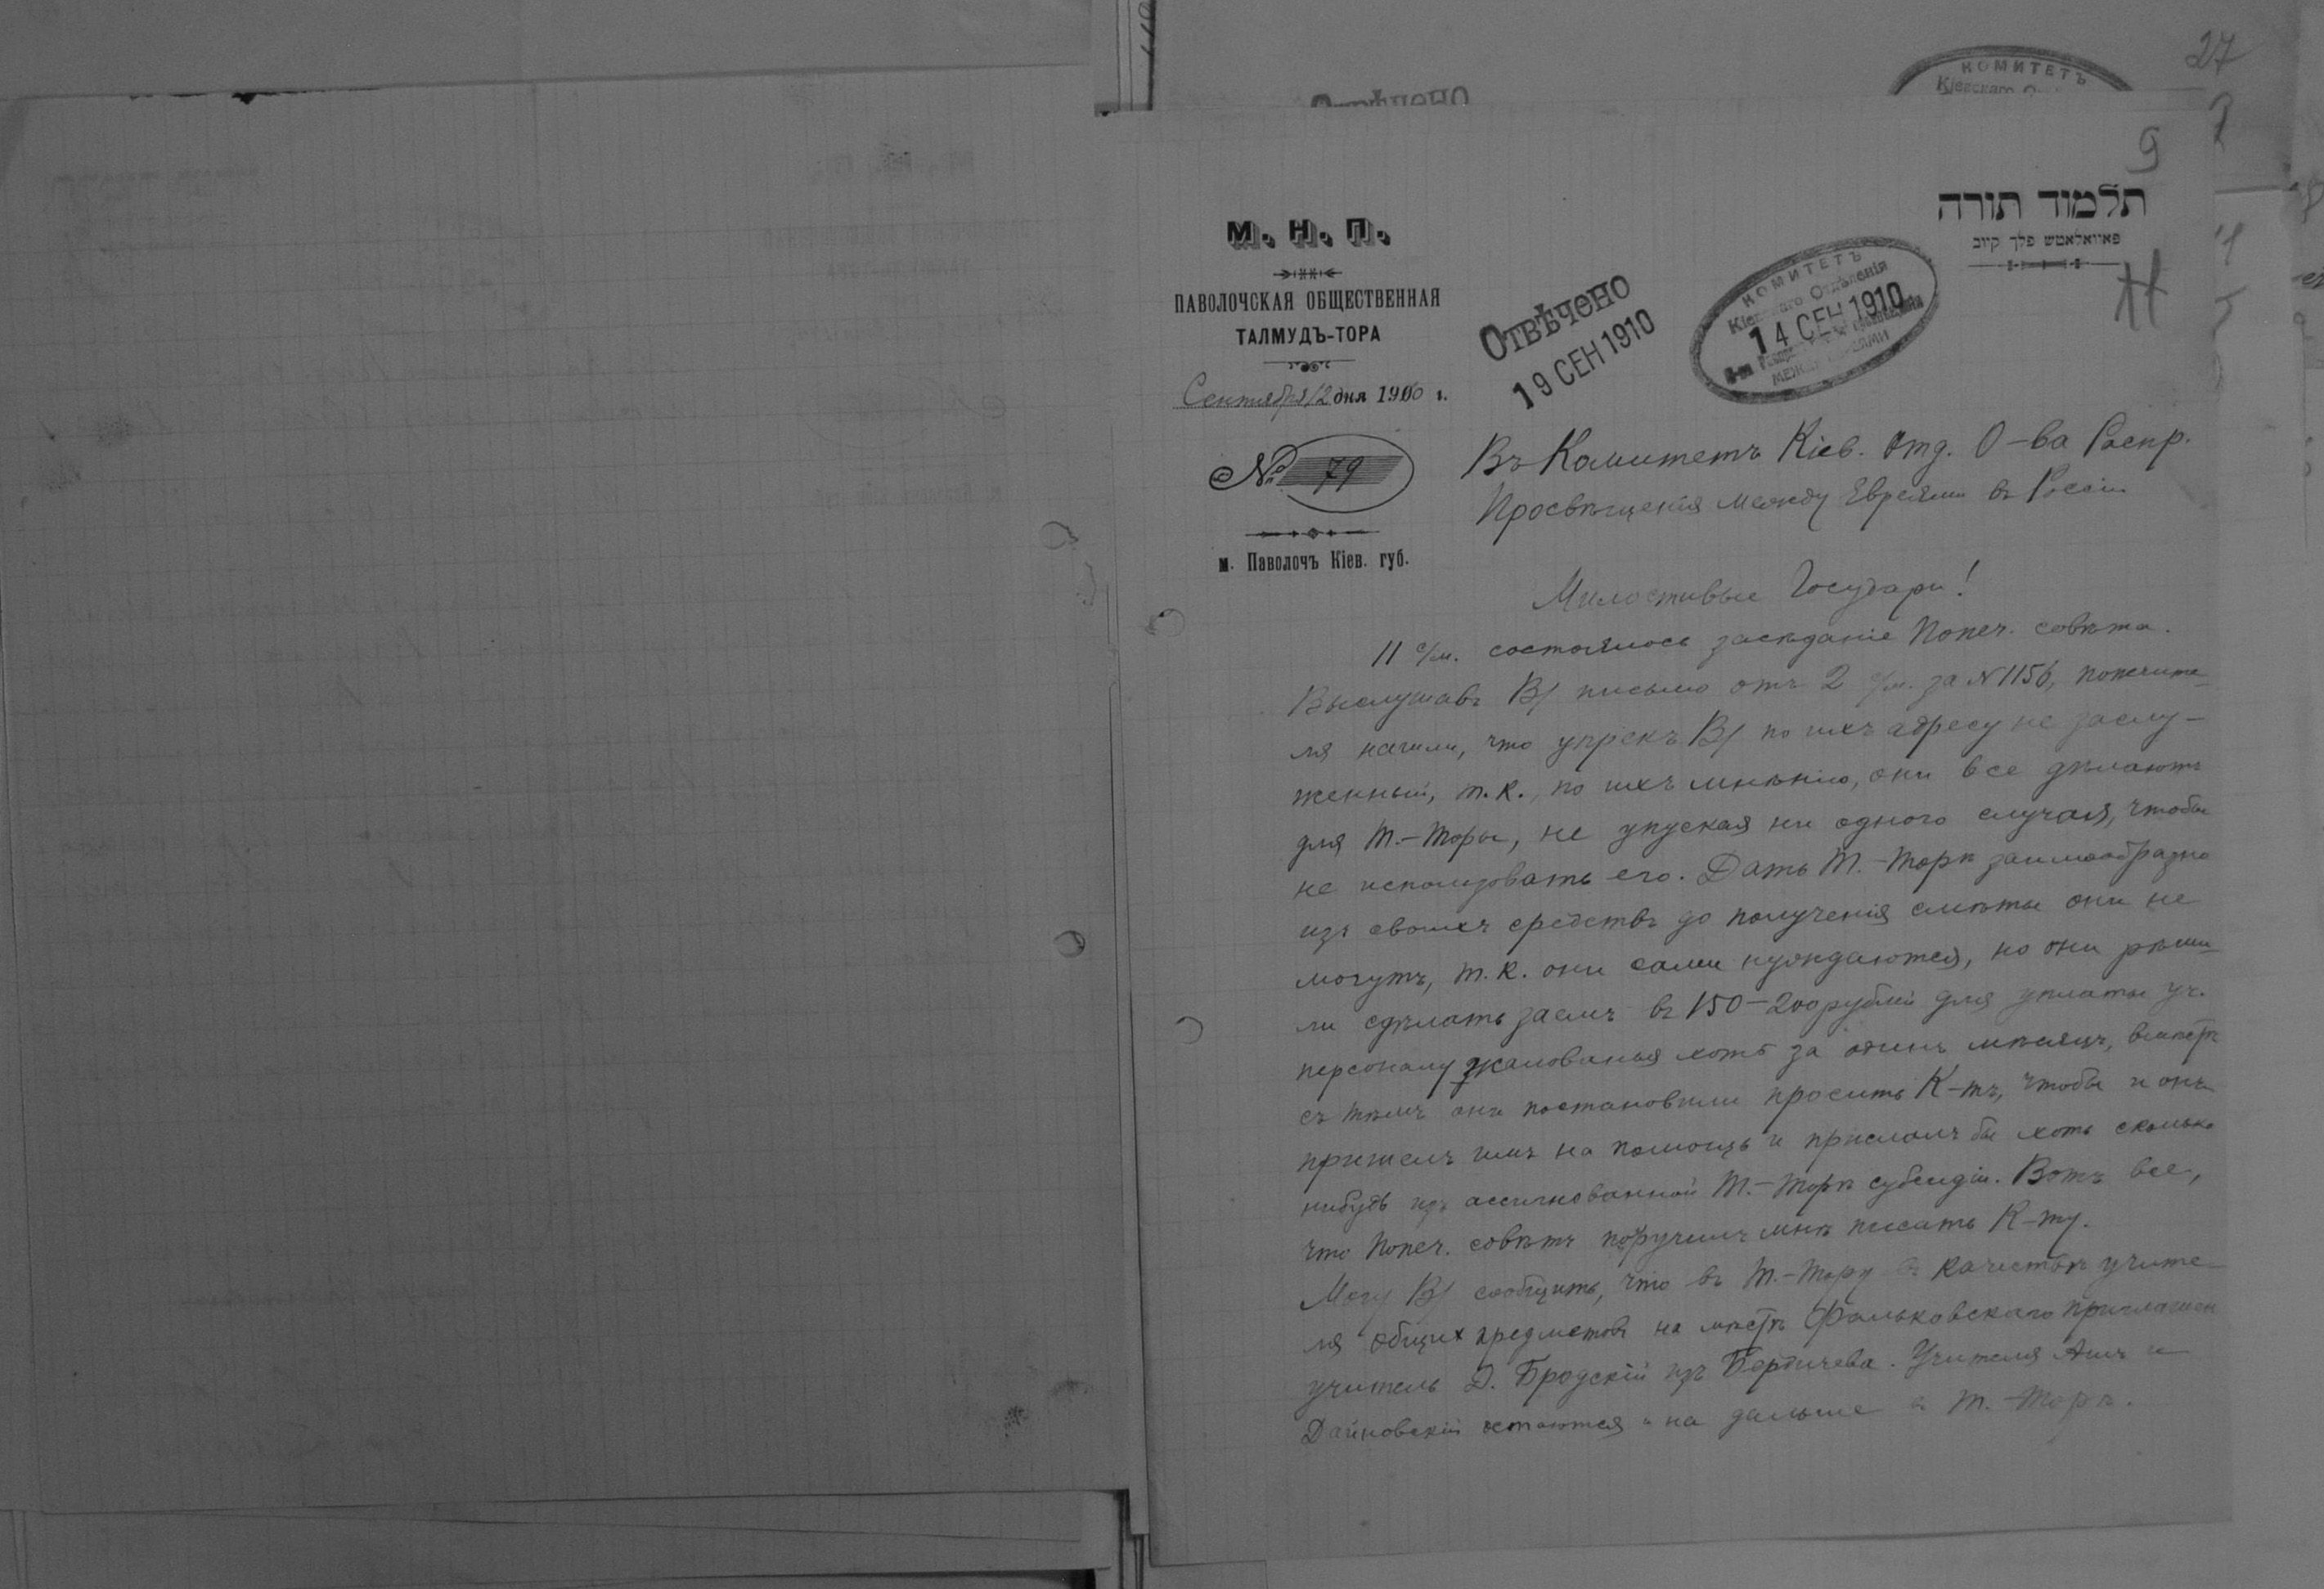 27
КОМИТЕТЪ
Кіевскаго
Отвѣчено
9
М. Н. П.
ПАВОЛОЧСКАЯ ОБЩЕСТВЕННАЯ
ТАЛМУДЪ-ТОРА
Сентября 12 дня 1910 г.
№ 79
м. Паволочъ Кіев. губ.
תלמוד תורה
פאוואלאטש פלך קיוב
Отвѣчено
19 СЕН 1910
КОМИТЕТЪ
Кіевскаго Отдѣленія
14 СЕН 1910
МЕЖДУ ЕВРЕЯМИ
Въ Комитетъ Кіев. Отд. О-ва Распр.
Просвѣщенія между Евреями въ Россіи
Милостивые Государи!
11 с/м. состоялось засѣданіе Попеч. совѣта.
Выслушавъ В/ письмо отъ 2 с/м. за N 1156, попечите-
ля нашли, что упрекъ В/ по ихъ адресу не заслу-
женный, т.к., по ихъ мнѣнію, они все дѣлаютъ
для Т.-Торы, не упуская ни одного случая, чтобы
не использовать его. Дать Т.-Торѣ заимообразно
изъ своихъ средствъ до полученія смѣты они не
могутъ, т.к. они сами нуждаются, но они рѣши-
ли сдѣлать заемъ въ 150-200 рублей для уплаты уч.
персоналу жалованья хоть за одинъ мѣсяцъ, вмѣстѣ
съ тѣмъ они постановили просить К-тъ, чтобы и онъ
пришелъ имъ на помощь и прислалъ бы хоть сколько
нибудь изъ ассигнованной Т.-Торѣ субсидіи. Вотъ все,
что Попеч. совѣтъ поручилъ мнѣ писать К-ту.
Могу В/ сообщить, что въ Т.-Тору въ качествѣ учите-
ля общих предметовъ на мѣстѣ Фальковскаго приглашен
учитель Д. Бродскій изъ Бердичева. Учителя и
Дайновскій остаются и на дальше въ Т.-Торѣ.